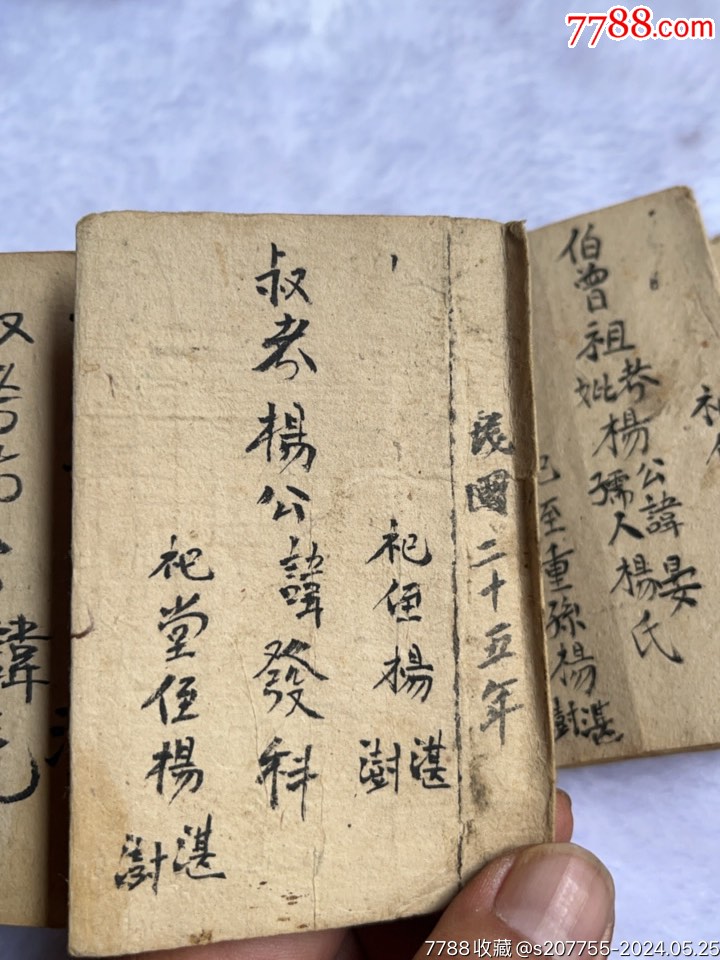 7788.com
民國二十五年
祀侄楊湛澍
叔考楊公諱發科
祀堂侄楊湛澍
伯曾祖考妣楊公諱晏孺人楊氏
祀至重孫楊湛澍
諱
7788收藏@s207755-2024.05.25